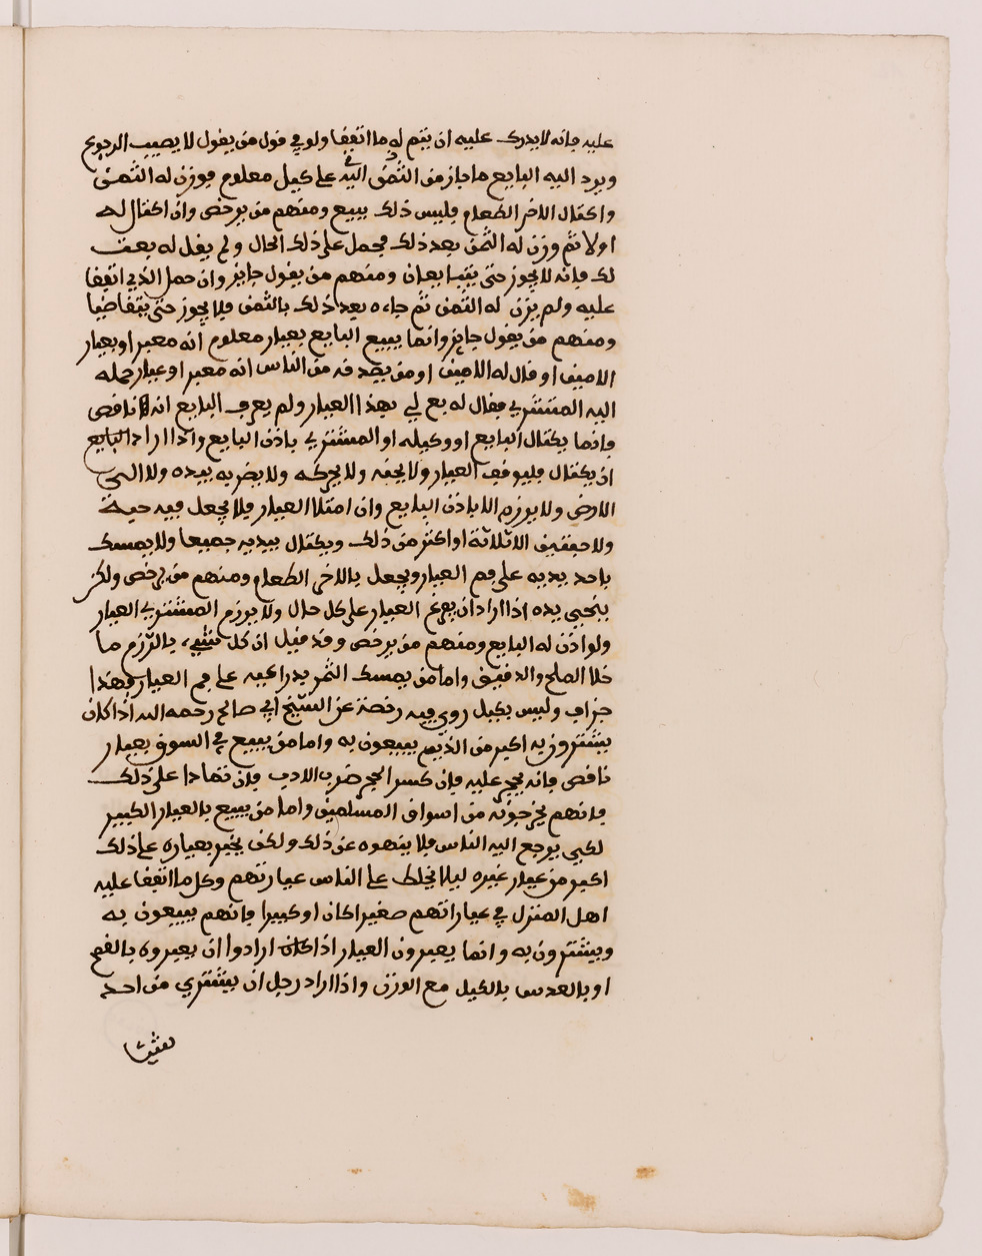 عليه فانه لا يدرك عليه ان يتم له ما اتفقا ولو في قول من يقول لا يصيب الرجوع
ويرد اليه البايع ما جاز من الثمن اليه على كيل معلوم فوزن له الثمن
واكتال الاخر الطعام فليس ذلك ببيع ومنهم من يرخص وان اكتال له
اولا ثم وزن له الثمن بعد ذلك فحمل على ذلك الحال ولم يقل له بعت
لك فانه لا يجوز حتى يتبايعان ومنهم من يقول جايز وان حمل الذي اتفقا
عليه ولم يزن له الثمن ثم جاءه بعد ذلك بالثمن فلا يجوز حتى يتقاضيا
ومنهم من يقول جايز وانما يبيع البايع بعيار معلوم انه معير او بعيار
الامين او قال له الامين او من يصدقه من الناس انه معير او عيار حمله
اليه المشتري فقال له بع لي بهذا العيار ولم يعرف البايع انه ناقص
فانما يكتال البايع او وكيله او المشتري باذن البايع واذا اراد البايع
ان يكتال فليوقف العيار ولا يحفه ولا يحركه ولا يضربه بيده ولا الى
الارض ولا يرزم الا باذن البايع وان امتلا العيار فلا يجعل فيه حبة
ولا حبتين الا ثلاثة او اكثر من ذلك ويكتال بيديه جميعا ولا يمسك
باحد يديه على فم العيار ويجعل بالاخرى الطعام ومنهم من يرخص ولكن
ينحي يده اذا اراد ان يفرغ العيار على كل حال ولا يرزم المشتري العيار
ولو اذن له البايع ومنهم من يرخص وقد قيل ان كل شيء بالرزم ما
خلا الملح والدقيق واما من يمسك الثمر بذراعيه على فم العيار فهذا
جزاف وليس بكيل روي فيه رخصة عن الشيخ ابي صالح رحمه الله اذا كان
يشترون به اكبر من الذي يبيعون به واما من يبيع في السوق بعيار
ناقص فانه يحجر عليه فان كسر الحجر ضرب الادب فان تمادا على ذلك
فانهم يخرجونه من اسواق المسلمين واما من يبيع بالعيار الكبير
لكي يرجع اليه الناس فلا ينهوه عن ذلك ولكن يخبر بعياره على ذلك
اكبر من عيار غيره ليلا يخلط على الناس عيارتهم وكل ما اتفقا عليه
اهل المنزل في عياراتهم صغيرا كان او كبيرا فانهم يبيعون به
ويشترون به وانما يعيرون العيار اذا ارادوا ان يعيروه بالقمح
او بالعدس بالكيل مع الوزن واذا اراد رجل ان يشتري من احد